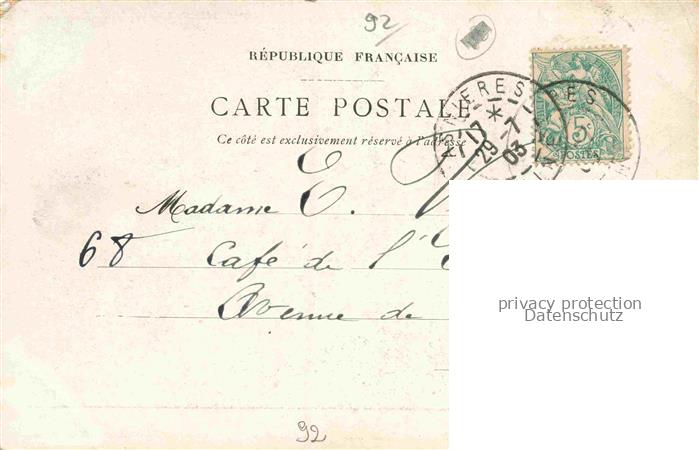 92
RÉPUBLIQUE FRANÇAISE
CARTE POSTALE
Ce côté est exclusivement réservé à l'adresse
ASNIERES
17
29 -7
03
5c
POSTES
Madame E. V
68 Café de l'E
Avenue de
privacy protection
Datenschutz
92